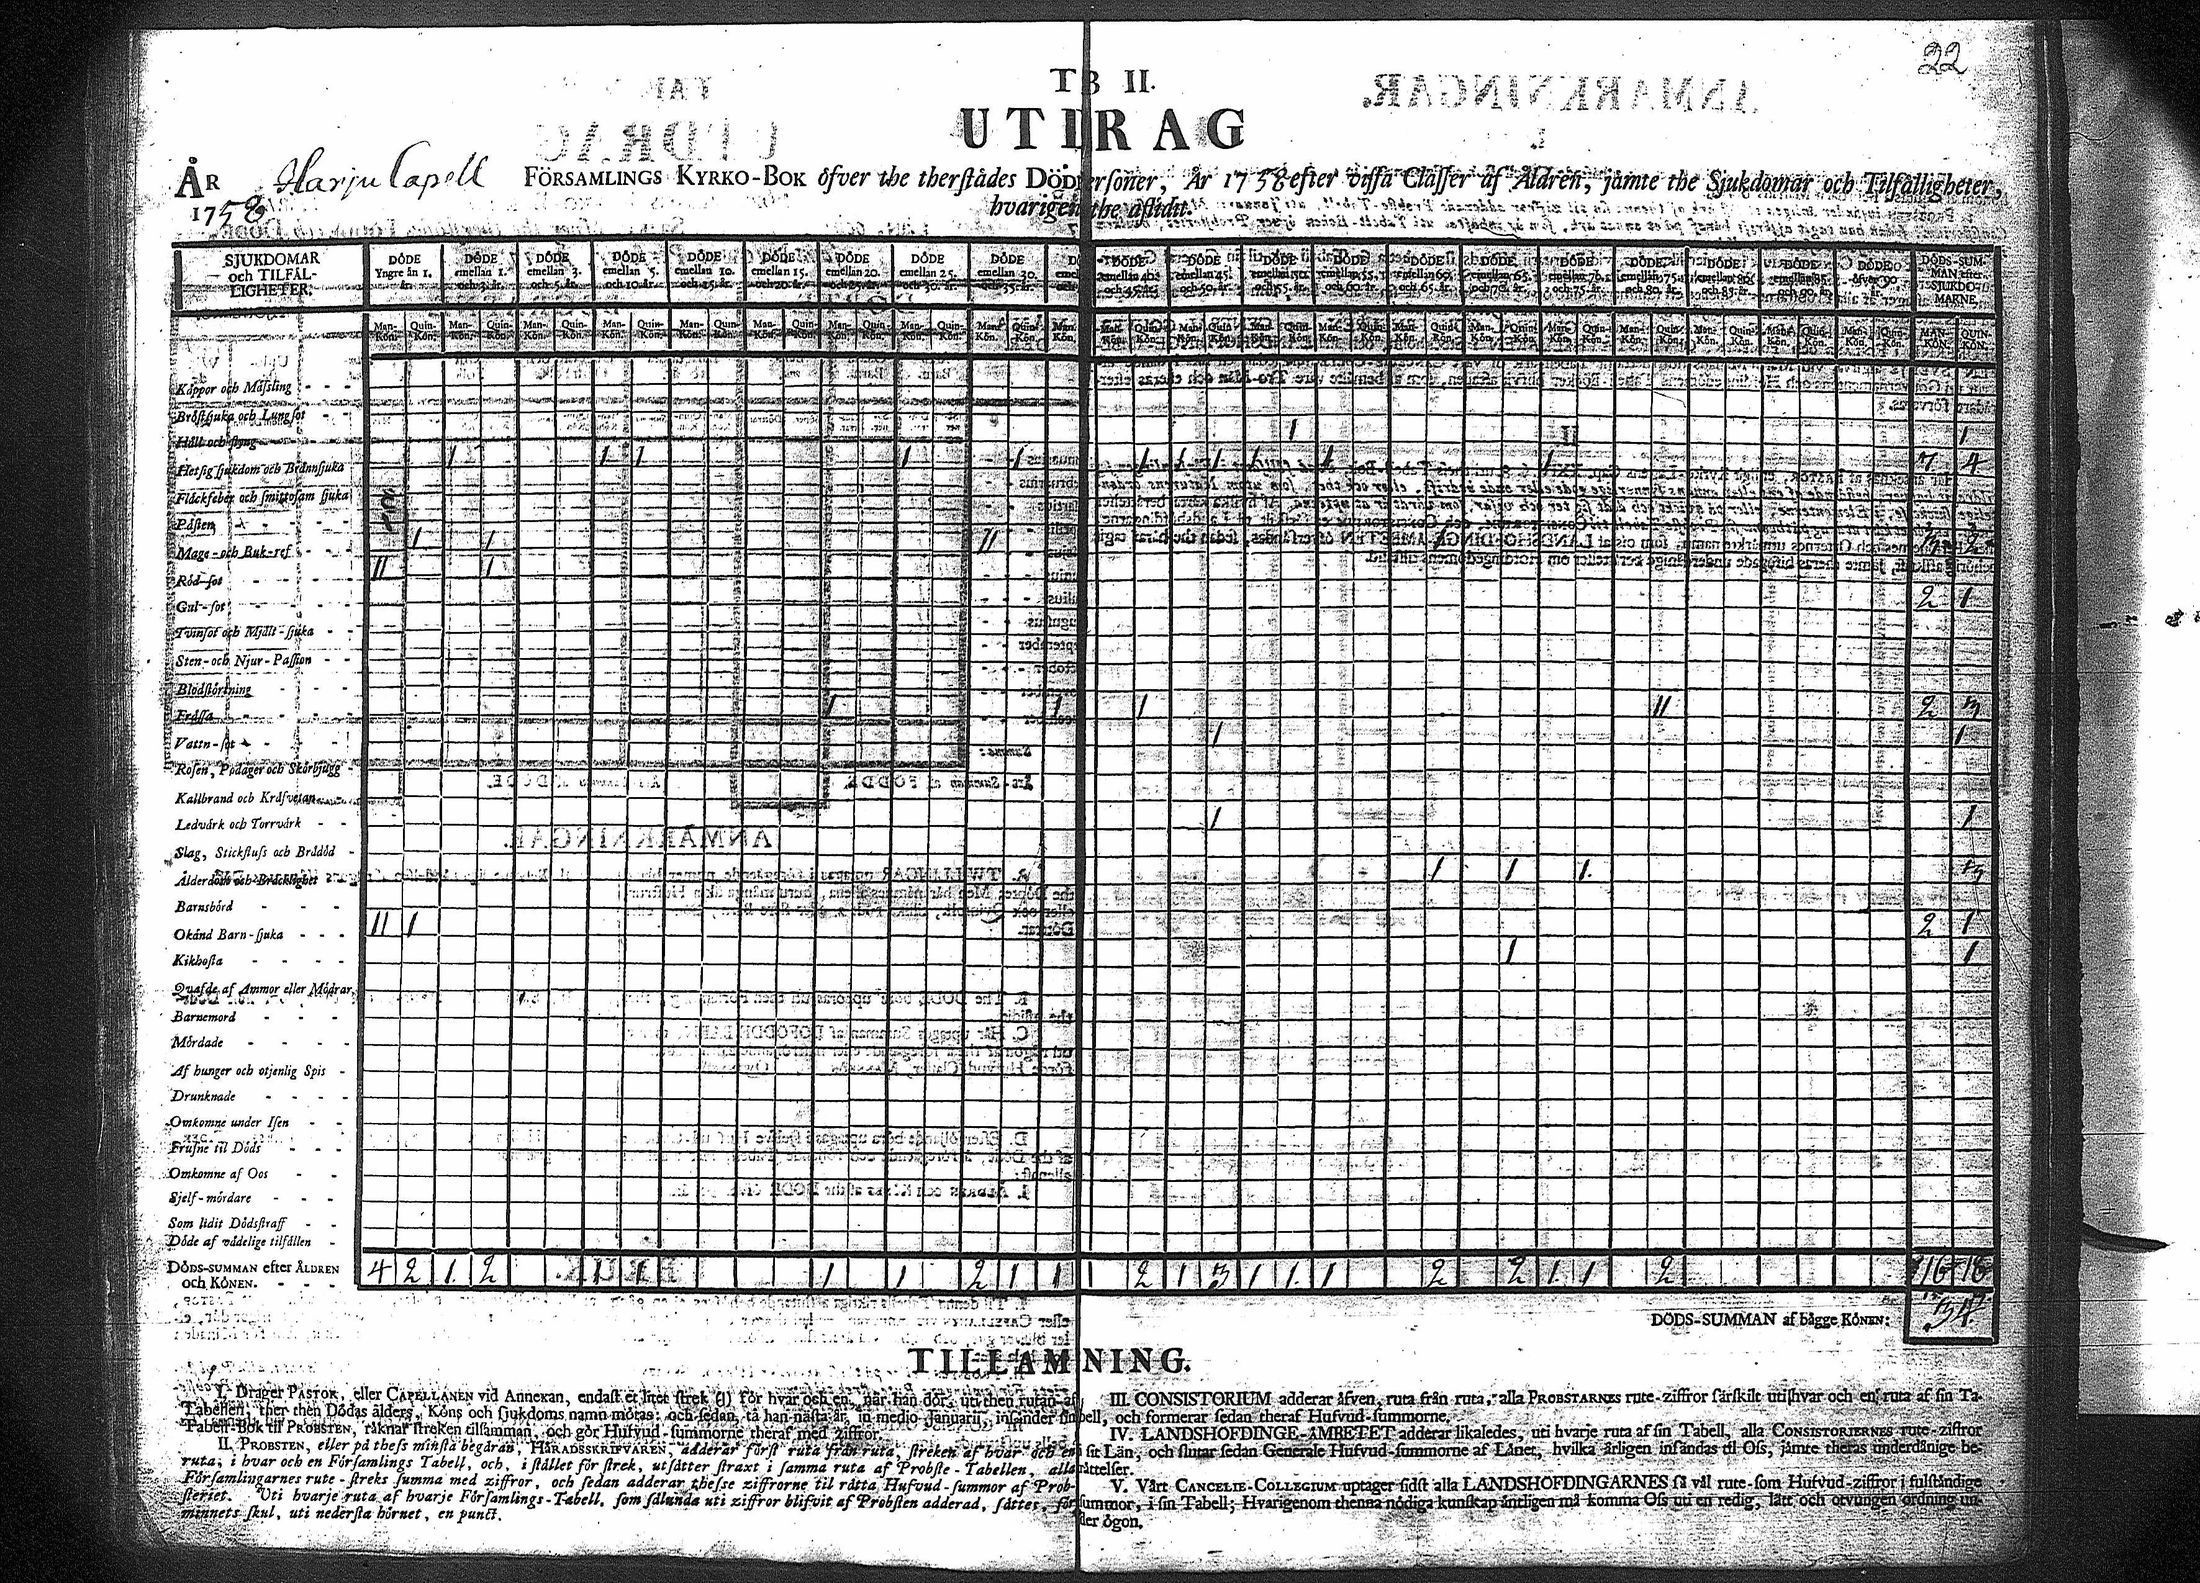 22
TB II.
UTDRAG
ÅR
1758
Harju Capell FÖRSAMLINGS KYRKO-BOK öfver the therstådes DÖDE Personer, År 1758 efter vissa Classer af Åldren, jämte the Sjukdomar och Tilfälligheter,
hvarigenom the aflidit.
SJUKDOMAR
och TILFÄL-
LIGHETER.
DÖDE Yngre än 1. år.
DÖDE emellan 1. och 3. år.
DÖDE emellan 3. och 5. år.
DÖDE emellan 5. och 10. år.
DÖDE emellan 10. och 15. år.
DÖDE emellan 15. och 20. år.
DÖDE emellan 20. och 25. år.
DÖDE emellan 25. och 30. år.
DÖDE emellan 30. och 35. år.
DÖDE emellan 40. och 45. år.
DÖDE emellan 45. och 50. år.
DÖDE och 55. år.
DÖDE emellan 55. och 60. år.
DÖDE emellan 60. och 65. år.
DÖDE emellan 65. och 70. år.
DÖDE emellan 70. och 75. år.
DÖDE emellan 75. och 80. år.
DÖDE emellan 80. och 85. år.
DÖDE emellan 85. och 90. år.
DÖDE öfver 90
DÖDS-SUM-
MAN efter
SJUKDO-
MARNE,
Man-Kön. Quin-Kön.
Koppor och Mässling
Bröstsjuka och Lungsot
Håll och styng 1 1
Hetsig sjukdom och Brännsjuka 1 1 1 1 1 1 1 1 1 1 1 7 4
Fläckfeber och smittosam sjuka
Pästen
Mage-och Buk-ref 1 1 11 2
Röd-sot 11 1
Gul-sot 2 1
Tvinsot och Mjält-sjuka
Sten-och Njur-Passion
Blodstörtning
Frossa 1 1 1 11 2 3
Vattn-sot 1 1
Rosen, Podager och Skörbjugg
Kallbrand och Kräfvetan
Ledvärk och Torrvärk 1 1
Slag, Stickfluss och Brådöd
Ålderdom och Bräcklighet 1 1 1. 3
Barnsbörd
Okänd Barn-sjuka 11 1 2 1
Kikhosta 1 1
Quafde af Ammor eller Mödrar,
Barnemord
Mördade
Af hunger och otjenlig Spis
Drunknade
Omkomne under Isen
Frusne til Döds
Omkomne af Oos
Sjelf-mördare
Som lidit Dödsstraff
Döde af vådelige tilfällen
DÖDS-SUMMAN efter ÅLDREN
och KÖNEN. 4 2 1. 2 1 1 1 1 2 1 1 1 2 1 3 1 1. 1 2 2 1. 1 2 16 18
DÖDS-SUMMAN af bägge KÖNEN: 34.
TILLÄMNING.
I. Drager PASTOR, eller CAPELLANEN vid Annexan, endast et litet strek (J) för hvar och en, när han dör, uti then rutan af
Tabellen, ther then Dödas ålders, Köns och sjukdoms namn mötas; och sedan, tå han nästa år, in medio Januarii, insänder sin
Tabell-Bok til PROBSTEN, räknar streken tilsamman, och gör Hufvud-summorne theraf med ziffror.
II. PROBSTEN, eller på thess minsta begäran, HÄRADSSKRIFVAREN, adderar först ruta från ruta, streken af hvar och en
ruta, i hvar och en Församlings Tabell, och, i stället för strek, utsätter straxt i samma ruta af Probste-Tabellen, alla
Församlingarnes rute-streks summa med ziffror, och sedan adderar thesse ziffrorne til rätta Hufvud-summor af Prob-
steriet. Uti hvarje ruta af hvarje Församlings-Tabell, som sålunda uti ziffror blifvit af Probsten adderad, sättes, för
minnets skul, uti nedersta hörnet, en punct.
III. CONSISTORIUM adderar äfven, ruta från ruta, alla PROBSTARNES rute-ziffror särskilt uti hvar och en ruta af sin Ta-
bell, och formerar sedan theraf Hufvud-summorne.
IV. LANDSHÖFDINGE-ÄMBETET adderar likaledes, uti hvarje ruta af sin Tabell, alla CONSISTORIERNES rute-ziffror
i sit Län, och slutar sedan Generale Hufvud-summorne af Länet, hvilka årligen insändas til Oss, jämte theras underdånige be-
rättelser.
V. Vårt CANCELIE-COLLEGIUM uptager sidst alla LANDSHÖFDINGARNES så väl rute-som Hufvud-ziffror i fulständige
summor, i sin Tabell; Hvarigenom thenna nödiga kunskap äntligen må komma Oss uti en redig, lätt och otvungen ordning un-
der ögon.